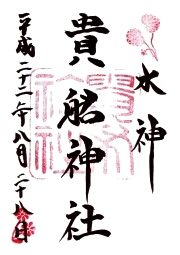 水神
貴船神社
平成二十二年八月二十八日